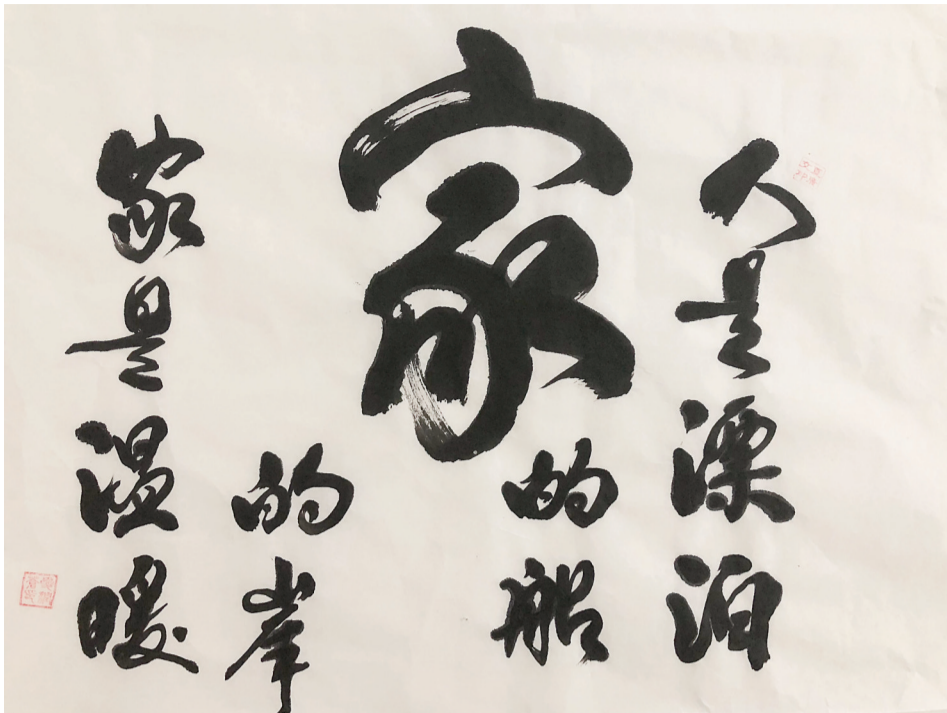 人是漂泊
的船
家
家是温暖
的岸